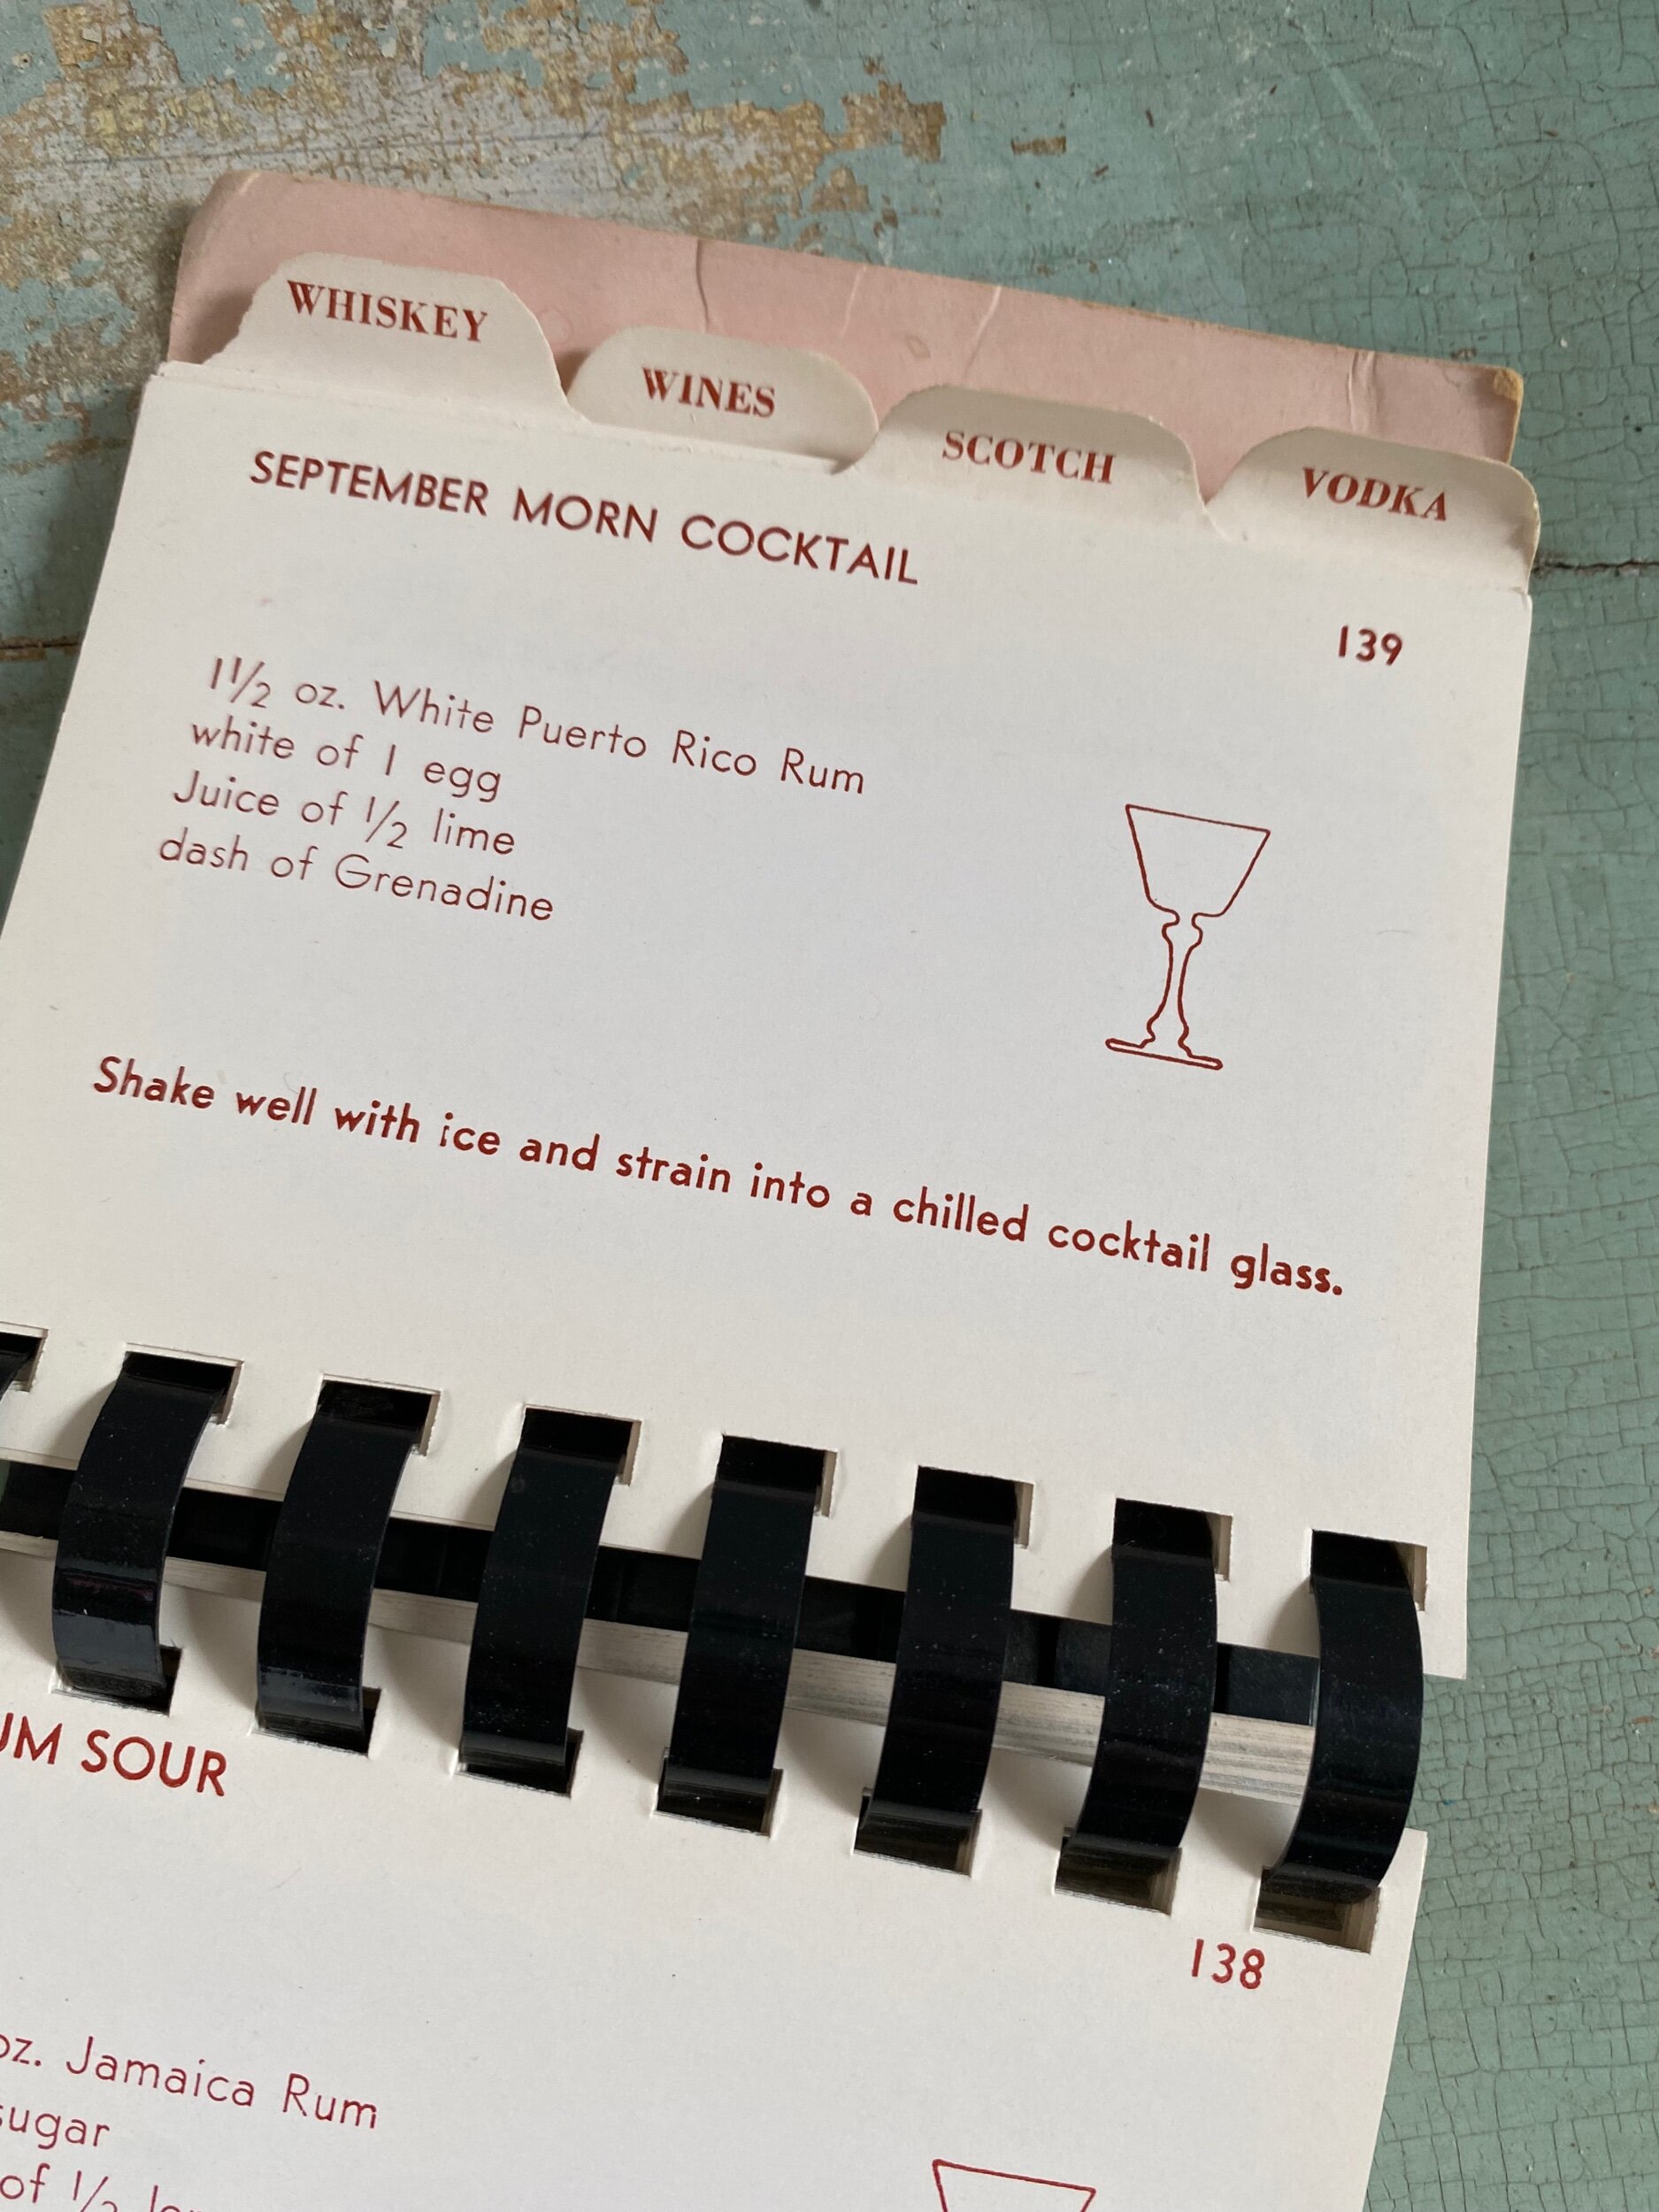 WHISKEY
WINES
SCOTCH
VODKA
SEPTEMBER MORN COCKTAIL
139
1½ oz. White Puerto Rico Rum
white of 1 egg
Juice of ½ lime
dash of Grenadine
Shake well with ice and strain into a chilled cocktail glass.
SOUR
138
oz. Jamaica Rum
sugar
of ½